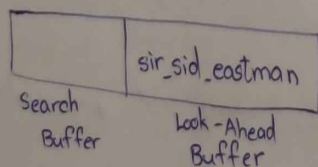 sir_sid_eastman
Search
Buffer
Look-Ahead
Buffer